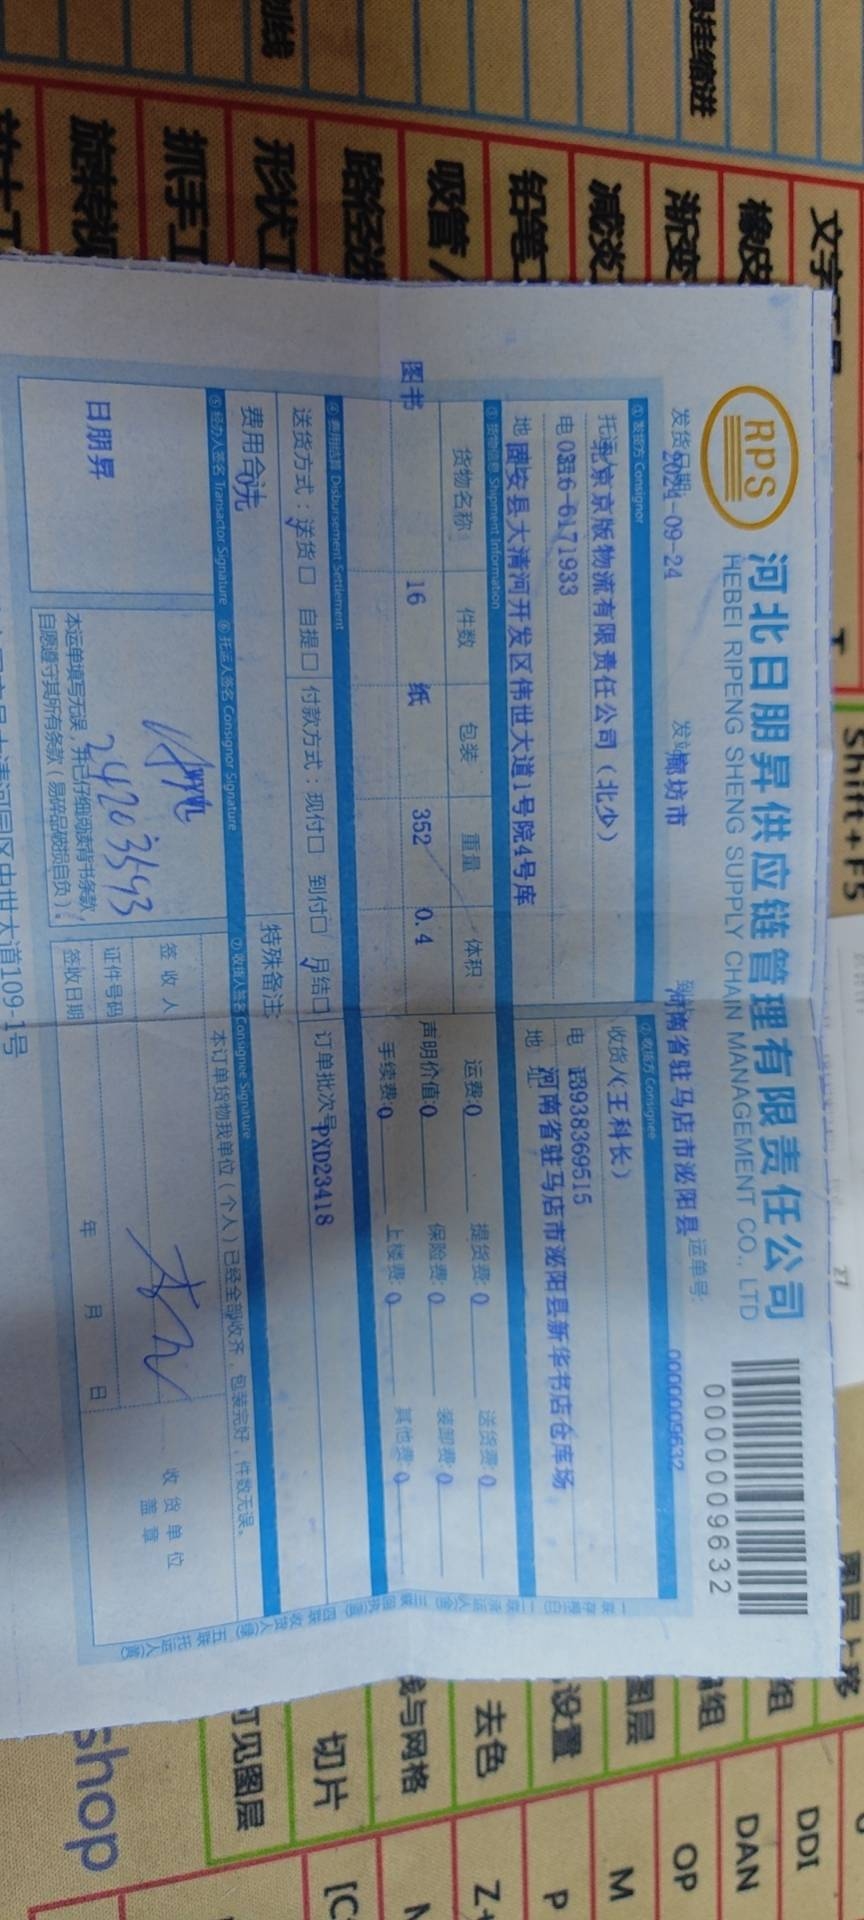 RPS
河北日朋昇供应链管理有限责任公司
HEBEI RIPENG SHENG SUPPLY CHAIN MANAGEMENT CO., LTD
0000009632
发货日期 2024-09-24 发站 廊坊市 到站 河南省驻马店市泌阳县 运单号: 0000009632
① 发货方 Consignor
② 收货方 Consignee
京版物流有限责任公司（北少）
收货人（王科长）
电 0316-6171933
电 13938369515
地 固安县大清河开发区伟世大道1号院4号库
地 址 河南省驻马店市泌阳县新华书店仓库场
③ 货物信息 Shipment Information
货物名称 件数 包装 重量 体积
运费:0 提货费:0 送货费:0
图书 16 纸 352 0.4
声明价值:0 保险费:0 装卸费:0
手续费:0 上楼费:0 其他费:0
④ 费用结算 Disbursement Settlement
送货方式：送货□ 自提□ 付款方式：现付□ 到付□ 月结□ 订单批次号 PXD23418
费用合计 0元 特殊备注:
⑤ 经办人签名 Transactor Signature
⑥ 托运人签名 Consignor Signature
⑦ 收货人签名 Consignee Signature
日朋昇
本订单货物我单位（个人）已经全部收齐，包装完好，件数无误。
24203593
签收人
证件号码
签收日期 年 月 日
收货单位
盖章
本运单填写无误，并已仔细阅读背书条款，
自愿遵守其所有条款（易碎品破损自负）。
大清河园区中世大道109-1号
悬挂缩进
文字工具
T
橡皮
渐变
减淡
铅笔工
吸管
路径选
形状工
抓手工
旋转视
Shift+F5
图层上移
组
编组
图层
设置
去色
线与网格
切片
可见图层
shop
DDI
DAN
OP
M
P